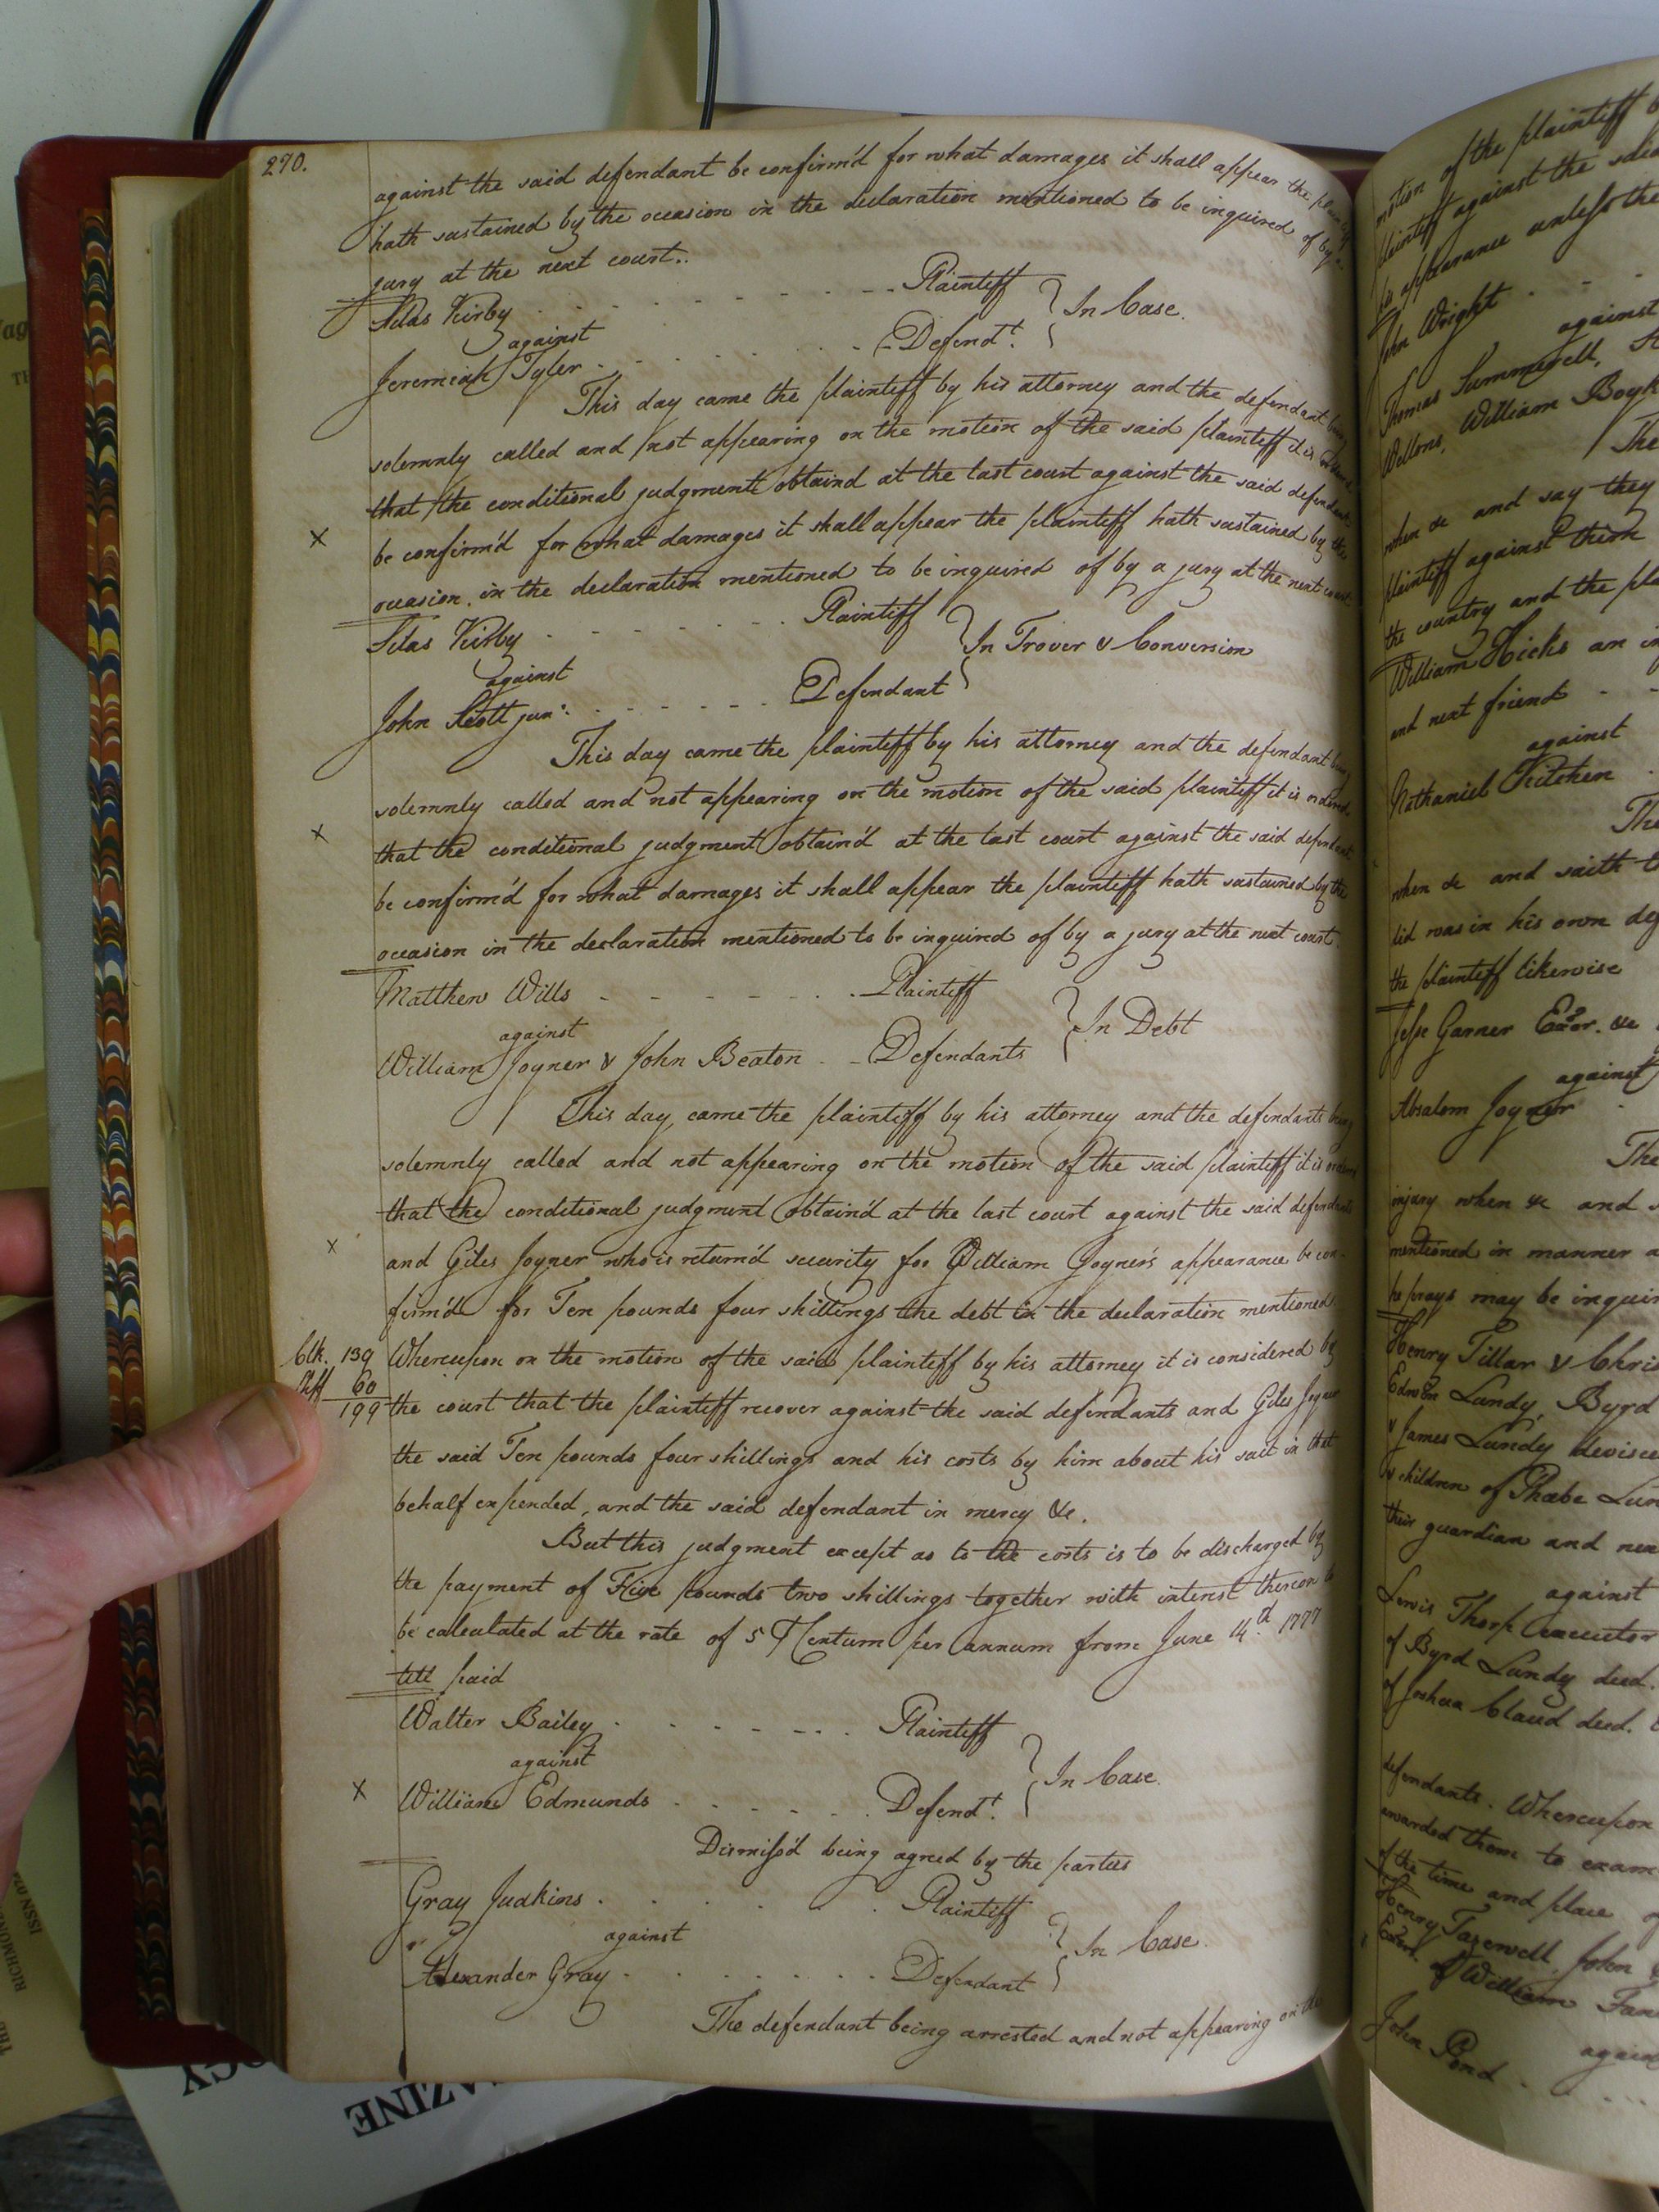 270.
against the said defendant be confirm'd for what damages it shall appear the
hath sustained by the occasion in the declaration mentioned to be inquired of by a
jury at the next court..
Silas Kirby Plaintiff
against In Case.
Jeremiah Tyler Defendt.
This day came the plaintiff by his attorney and the defendant being
solemnly called and not appearing on the motion of the said plaintiff it is ordered
that the conditional judgment obtaind at the last court against the said defendant
X be confirm'd for what damages it shall appear the plaintiff hath sustained by the
occasion in the declaration mentioned to be inquired of by a jury at the next court
Silas Kirby Plaintiff
against In Trover & Conversion
John Scott junr. Defendant
This day came the plaintiff by his attorney and the defendant being
solemnly called and not appearing on the motion of the said plaintiff it is ordered
X that the conditional judgment obtain'd at the last court against the said defendant
be confirm'd for what damages it shall appear the plaintiff hath sustained by the
occasion in the declaration mentioned to be inquired of by a jury at the next court.
Matthew Wills Plaintiff
against In Debt
William Joyner & John Beaton Defendants
This day came the plaintiff by his attorney and the defendants being
solemnly called and not appearing on the motion of the said plaintiff it is ordered
that the conditional judgment obtain'd at the last court against the said defendants
X and Giles Joyner who is return'd security for William Joyner's appearance be con-
firm'd for Ten pounds four shillings the debt in the declaration mentioned.
Clk. 139 Whereupon on the motion of the said plaintiff by his attorney it is considered by
Shff 60
199 the court that the plaintiff recover against the said defendants and Giles Joyner
the said Ten pounds four shillings and his costs by him about his suit in that
behalf expended, and the said defendant in mercy &c.
But this judgment except as to the costs is to be discharged by
the payment of Five pounds two shillings together with interest thereon to
be calculated at the rate of 5 ⅌ Centum per annum from June 14th. 1777
till paid
Walter Bailey Plaintiff
against In Case.
X William Edmunds Defendt.
Dismiss'd being agreed by the parties
Gray Judkins Plaintiff
against In Case.
Alexander Gray Defendant
The defendant being arrested and not appearing on the
motion of the plaintiff
plaintiff against the said
his appearance unless the
John Wright
against
Thomas Summerell,
Wellons, William Boyk
The
when &c and say they
plaintiff against them
the country and the pla
William Hicks an in
and next friend
against
Nathaniel Kitchen
The
when &c and saith
did was in his own de
the plaintiff likewise
Jesse Garner Exor. &c
against
Absalom Joyner
The
injury when &c and
mentioned in manner a
he prays may be inquir
Henry Tillar & Chris
Edwin Lundy, Byrd
& James Lundy devisee
& children of Phœbe Lun
their guardian and nex
against
Lewis Thorp executor
of Byrd Lundy deed.
of Joshua Claud deed.
defendants. Whereupon
awarded them to exam
of the time and place of
Henry Tazewell, John
Exors. of William Fan
against
John Pond